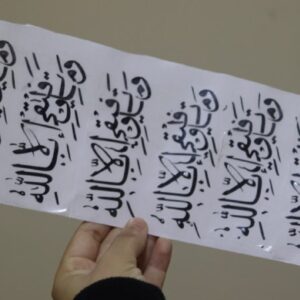 وما توفيقي إلا بالله
وما توفيقي إلا بالله
وما توفيقي إلا بالله
وما توفيقي إلا بالله